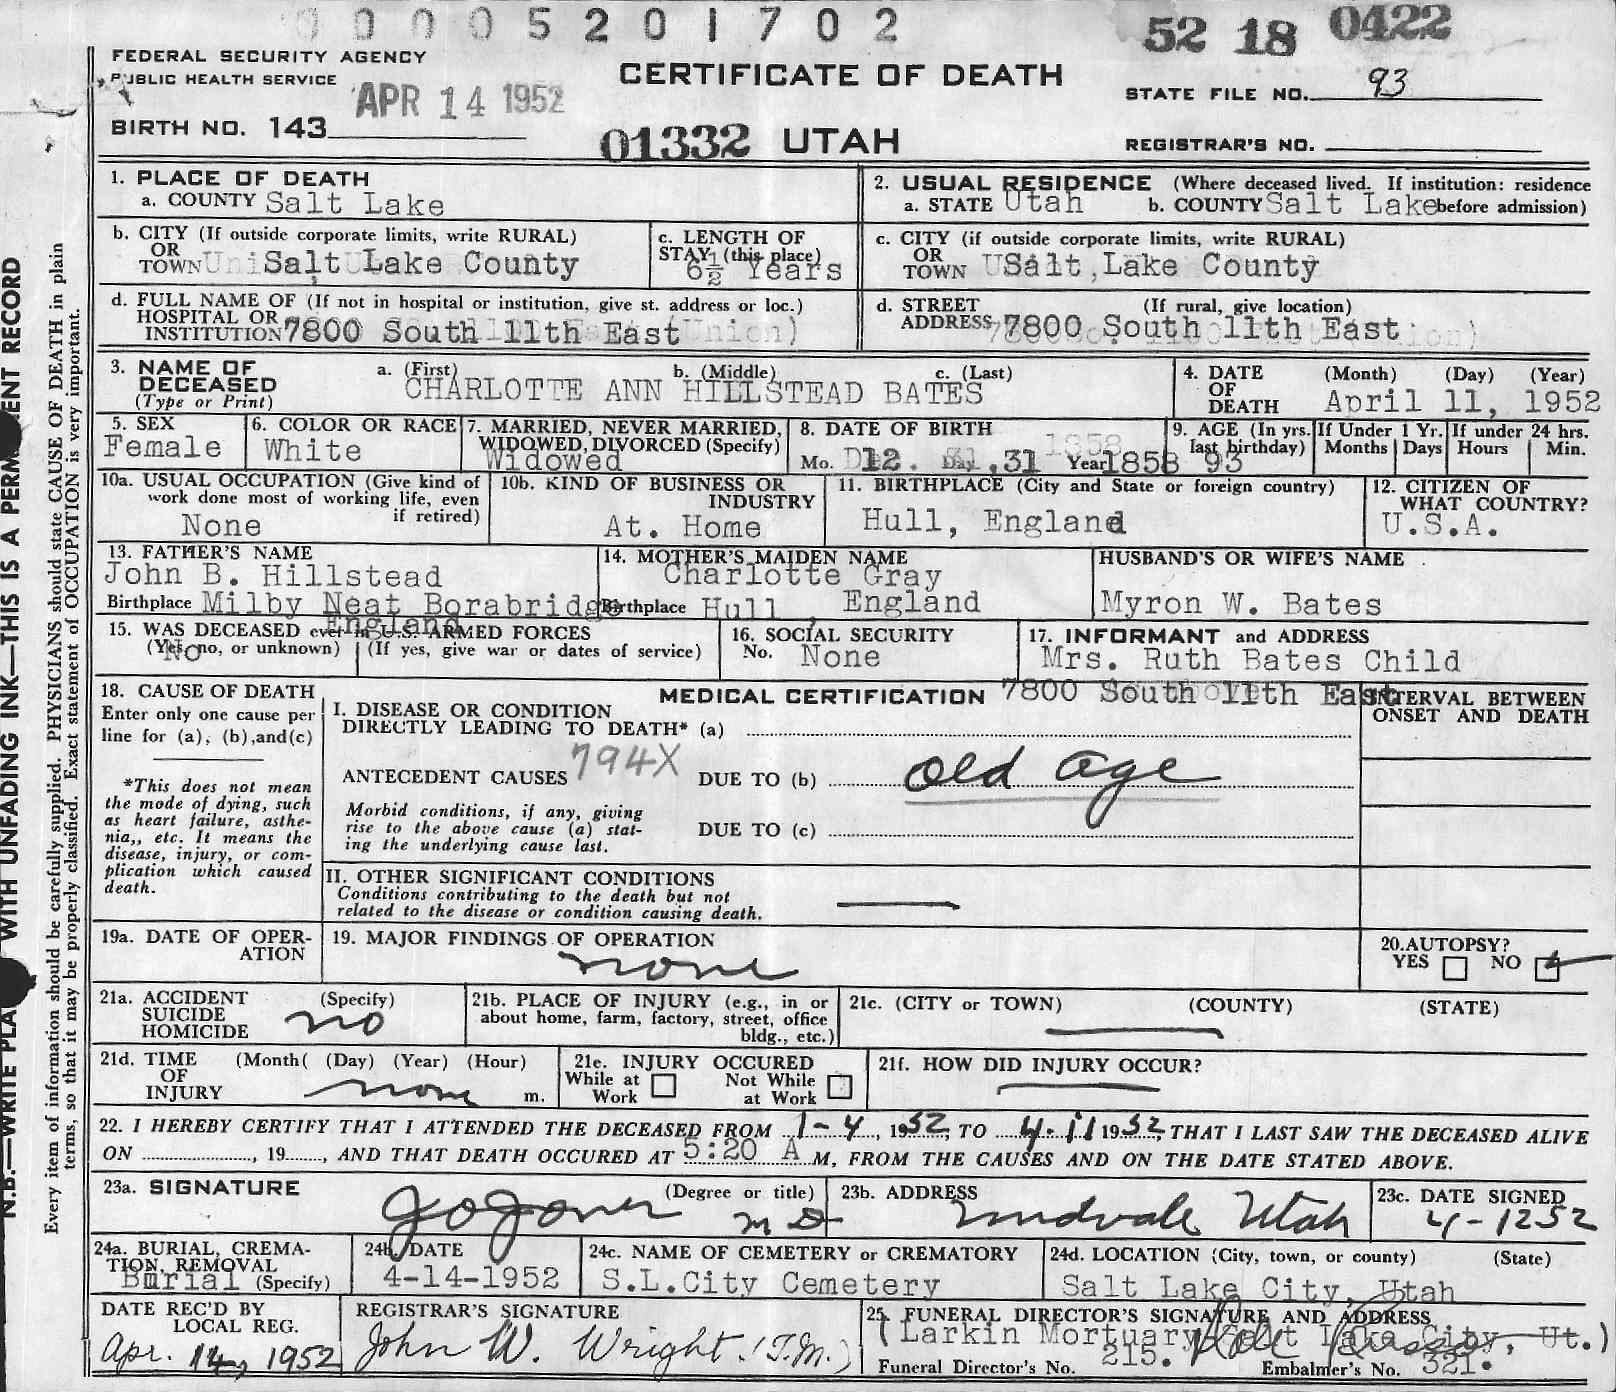 0 0 0 0 5 2 0 1 7 0 2
52 18 0422
FEDERAL SECURITY AGENCY
PUBLIC HEALTH SERVICE
APR 14 1952
CERTIFICATE OF DEATH
STATE FILE NO. 93
BIRTH NO. 143
01332 UTAH
REGISTRAR'S NO.
1. PLACE OF DEATH
a. COUNTY Salt Lake
2. USUAL RESIDENCE (Where deceased lived. If institution: residence before admission)
a. STATE Utah b. COUNTY Salt Lake
b. CITY (If outside corporate limits, write RURAL)
OR
TOWN Salt Lake County
c. LENGTH OF
STAY (this place)
6½ Years
c. CITY (if outside corporate limits, write RURAL)
OR
TOWN Salt Lake County
d. FULL NAME OF (If not in hospital or institution, give st. address or loc.)
HOSPITAL OR
INSTITUTION 7800 South 11th East
d. STREET (If rural, give location)
ADDRESS 7800 South 11th East
3. NAME OF
DECEASED
(Type or Print)
a. (First) b. (Middle) c. (Last)
CHARLOTTE ANN HILLSTEAD BATES
4. DATE (Month) (Day) (Year)
OF
DEATH April 11, 1952
5. SEX
Female
6. COLOR OR RACE
White
7. MARRIED, NEVER MARRIED,
WIDOWED, DIVORCED (Specify)
Widowed
8. DATE OF BIRTH
Mo. 12. Day 31 Year 1858
9. AGE (In yrs.
last birthday)
93
If Under 1 Yr.
Months Days
If under 24 hrs.
Hours Min.
10a. USUAL OCCUPATION (Give kind of
work done most of working life, even
if retired)
None
10b. KIND OF BUSINESS OR
INDUSTRY
At. Home
11. BIRTHPLACE (City and State or foreign country)
Hull, England
12. CITIZEN OF
WHAT COUNTRY?
U.S.A.
13. FATHER'S NAME
John B. Hillstead
Birthplace Milby Neat Borabridge
England
14. MOTHER'S MAIDEN NAME
Charlotte Gray
Birthplace Hull, England
HUSBAND'S OR WIFE'S NAME
Myron W. Bates
15. WAS DECEASED ever in U.S. ARMED FORCES
(Yes, no, or unknown) (If yes, give war or dates of service)
No
16. SOCIAL SECURITY
No. None
17. INFORMANT and ADDRESS
Mrs. Ruth Bates Child
7800 South 11th East
18. CAUSE OF DEATH
Enter only one cause per
line for (a), (b), and (c)
*This does not mean
the mode of dying, such
as heart failure, asthe-
nia,, etc. It means the
disease, injury, or com-
plication which caused
death.
MEDICAL CERTIFICATION
INTERVAL BETWEEN
ONSET AND DEATH
I. DISEASE OR CONDITION
DIRECTLY LEADING TO DEATH* (a)
ANTECEDENT CAUSES 794X DUE TO (b) old age
Morbid conditions, if any, giving
rise to the above cause (a) stat-
ing the underlying cause last.
DUE TO (c)
II. OTHER SIGNIFICANT CONDITIONS
Conditions contributing to the death but not
related to the disease or condition causing death.
19a. DATE OF OPER-
ATION
19. MAJOR FINDINGS OF OPERATION
none
20. AUTOPSY?
YES NO
21a. ACCIDENT (Specify)
SUICIDE
HOMICIDE
no
21b. PLACE OF INJURY (e.g., in or
about home, farm, factory, street, office
bldg., etc.)
21c. (CITY or TOWN) (COUNTY) (STATE)
21d. TIME (Month( (Day) (Year) (Hour)
OF
INJURY none m.
21e. INJURY OCCURED
While at Work Not While at Work
21f. HOW DID INJURY OCCUR?
22. I HEREBY CERTIFY THAT I ATTENDED THE DECEASED FROM 1-4, 1952, TO 4-11 1952, THAT I LAST SAW THE DECEASED ALIVE
ON , 19 , AND THAT DEATH OCCURED AT 5:20 A M, FROM THE CAUSES AND ON THE DATE STATED ABOVE.
23a. SIGNATURE (Degree or title)
J O Jones M D
23b. ADDRESS
Midvale Utah
23c. DATE SIGNED
4-12 52
24a. BURIAL, CREMA-
TION, REMOVAL
Burial (Specify)
24b. DATE
4-14-1952
24c. NAME OF CEMETERY or CREMATORY
S.L.City Cemetery
24d. LOCATION (City, town, or county) (State)
Salt Lake City, Utah
DATE REC'D BY
LOCAL REG.
Apr. 14, 1952
REGISTRAR'S SIGNATURE
John W. Wright. (T.M.)
25. FUNERAL DIRECTOR'S SIGNATURE AND ADDRESS
(Larkin Mortuary Salt Lake City, Ut.)
Funeral Director's No. 215. Embalmer's No. 321.
N.B.—WRITE PLA WITH UNFADING INK—THIS IS A PERM ENT RECORD
Every item of information should be carefully supplied. PHYSICIANS should state CAUSE OF DEATH in plain
terms, so that it may be properly classified. Exact statement of OCCUPATION is very important.